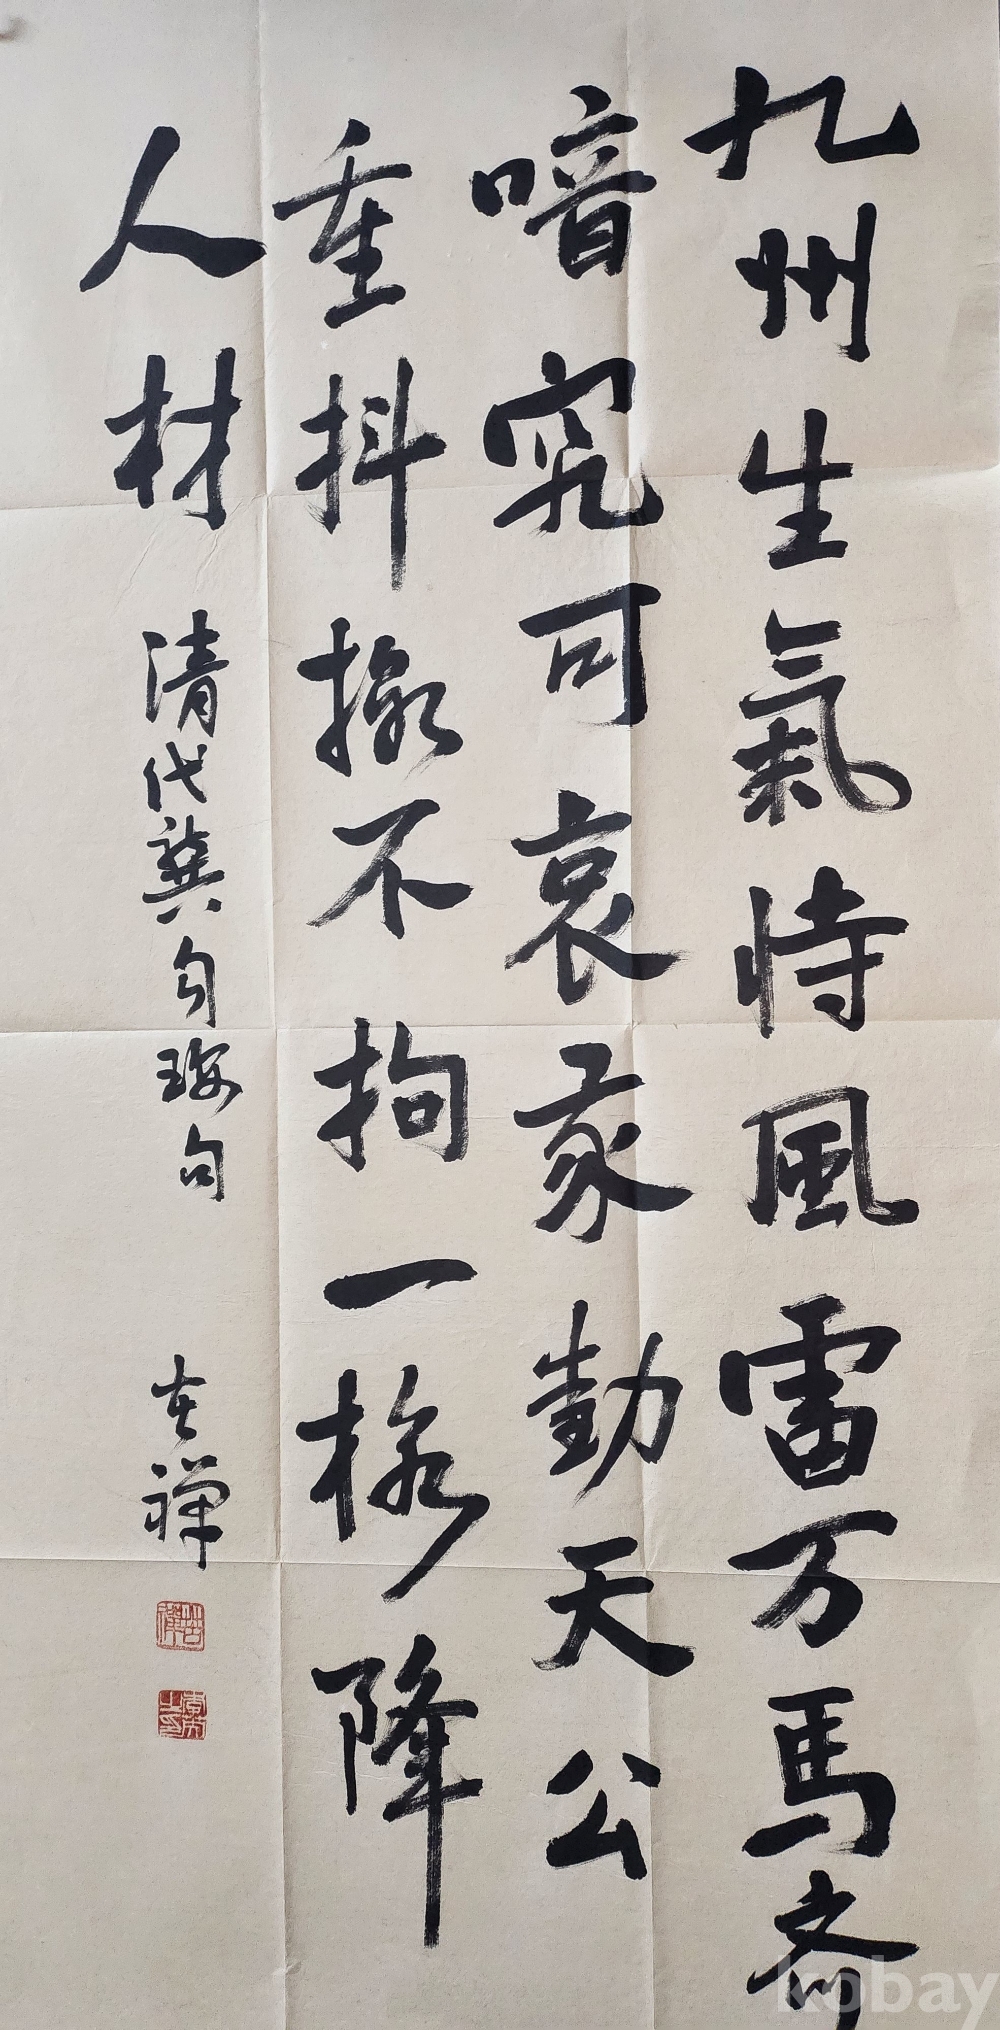 九州生氣恃風雷万馬齊
喑究可哀我勸天公
重抖擻不拘一格降
人材 清代龔自珍句 禅
kobay